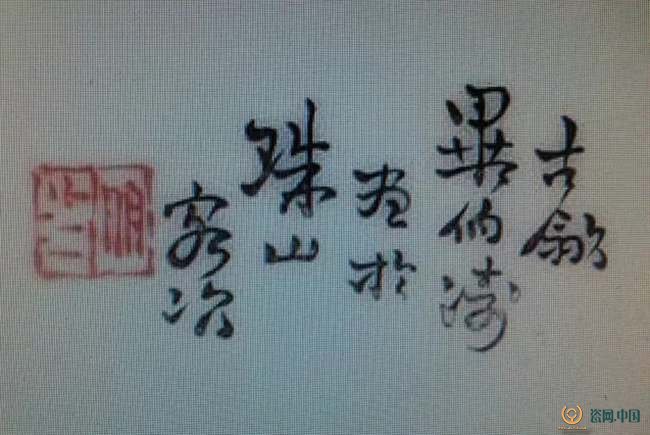 古歙
畢伯濤
画於
珠山
客次
瓷网.中国